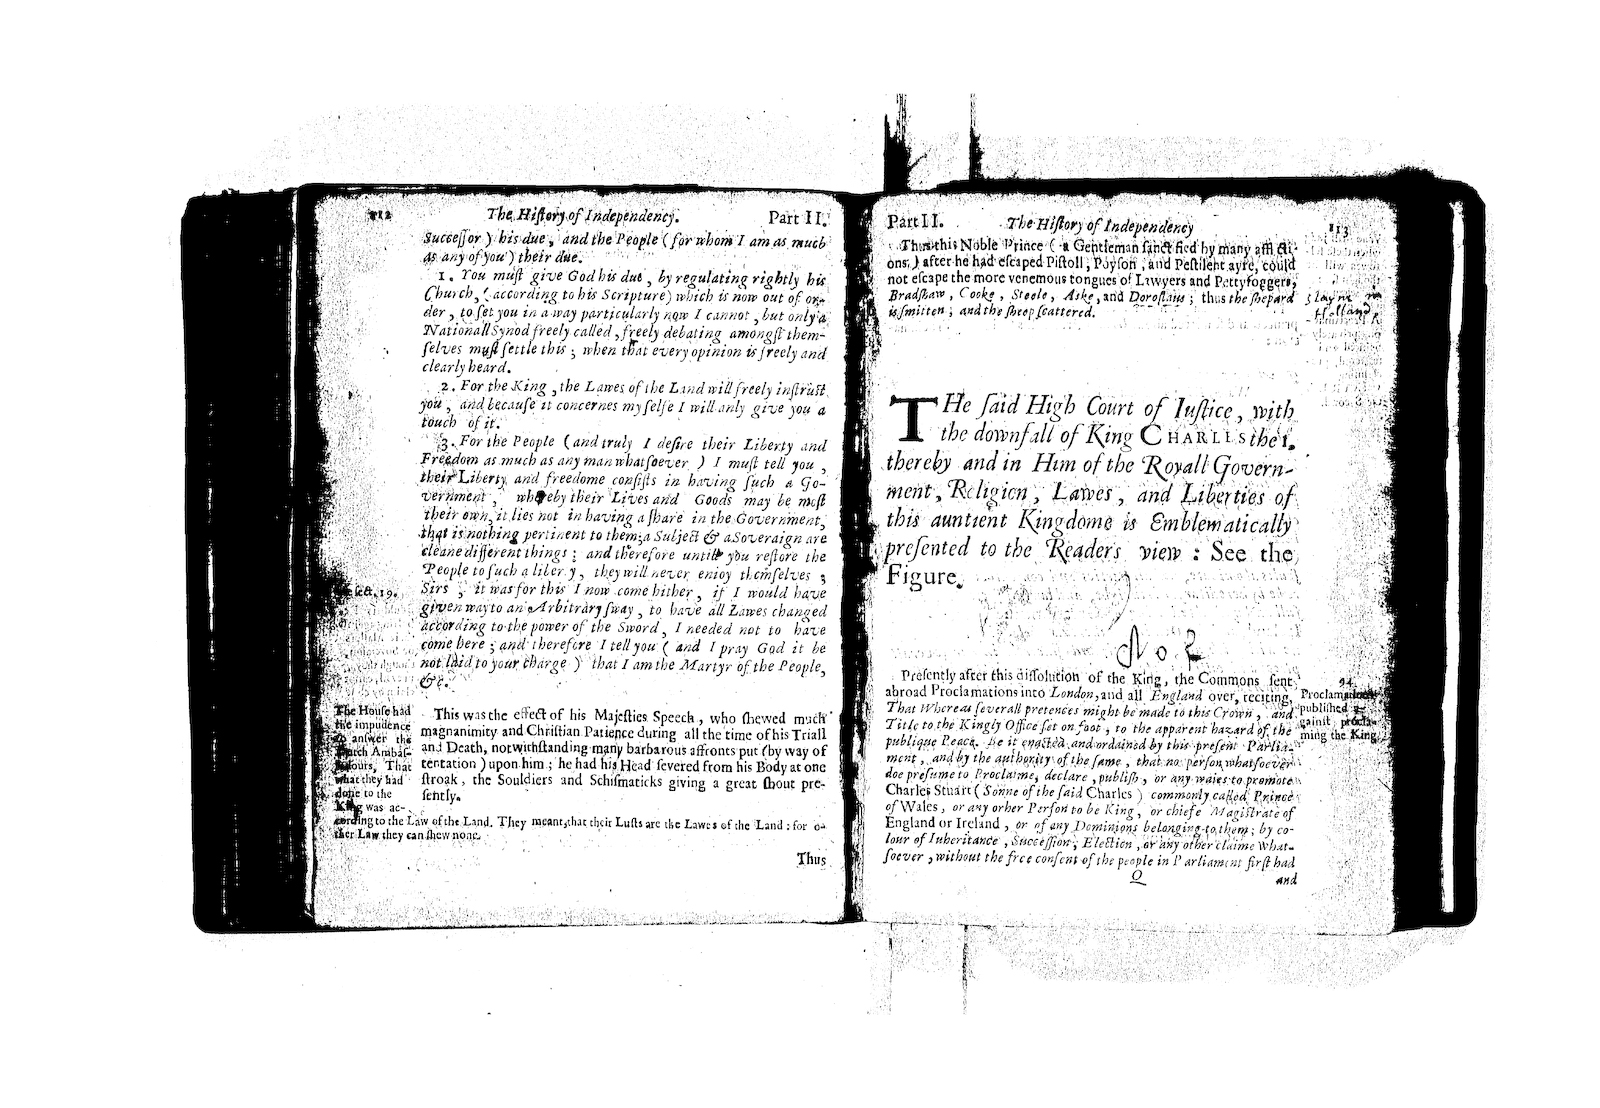 112 The History of Independency. Part II.
Succeſſor ) his due, and the People ( for whom I am as much
as any of you ) their due.
1. You muſt give God his due, by regulating rightly his
Church, ( according to his Scripture ) which is now out of or-
der, to ſet you in a way particularly now I cannot, but only a
Nationall Synod freely called, freely debating amongſt them-
ſelves muſt ſettle this ; when that every opinion is freely and
clearly heard.
2. For the King, the Lawes of the Land will freely inſtruct
you, and becauſe it concernes my ſelfe I will only give you a
touch of it.
3. For the People ( and truly I deſire their Liberty and
Freedom as much as any man whatſoever ) I muſt tell you,
their Liberty and freedome conſiſts in having ſuch a Go-
vernment, whereby their Lives and Goods may be moſt
their own, it lies not in having a ſhare in the Government,
that is nothing pertinent to them; a Subject & a Soveraign are
cleane different things ; and therefore untill you reſtore the
People to ſuch a liberty, they will never enjoy themſelves ;
Sirs, it was for this I now come hither, if I would have
given way to an Arbitrary ſway, to have all Lawes changed
according to the power of the Sword, I needed not to have
come here ; and therefore I tell you ( and I pray God it be
not laid to your charge ) that I am the Martyr of the People,
&c.
19.
This was the effect of his Majeſties Speech, who ſhewed much
magnanimity and Chriſtian Patience during all the time of his Triall
and Death, notwithſtanding many barbarous affronts put (by way of
tentation ) upon him ; he had his Head ſevered from his Body at one
ſtroak, the Souldiers and Schiſmaticks giving a great ſhout pre-
ſently.
The Houſe had
the impudence
to anſwer the
Dutch Ambaſ-
ſadours, That
what they had
done to the
King was ac-
cording to the Law of the Land. They meant, that their Luſts are the Lawes of the Land : for o-
ther Law they can ſhew none.
Thus
Part II. The History of Independency 113
Thus this Noble Prince ( a Gentleman ſanctified by many afflicti-
ons, ) after he had eſcaped Piſtoll, Poyſon, and Peſtilent ayre, could
not eſcape the more venemous tongues of Lawyers and Pettyfoggers,
Bradſhaw, Cooke, Steele, Aske, and Doroſlaus ; thus the ſhepard
is ſmitten ; and the ſheep ſcattered.
slayn in
Holland,
THe ſaid High Court of Juſtice, with
the downfall of King CHARLES the I.
thereby and in Him of the Royall Govern-
ment, Religion, Lawes, and Liberties of
this auntient Kingdome is Emblematically
preſented to the Readers view : See the
Figure.
No 2
Preſently after this diſſolution of the King, the Commons ſent
abroad Proclamations into London, and all England over, reciting,
That Whereas ſeverall pretences might be made to this Crown, and
Title to the Kingly Office ſet on foot, to the apparent hazard of the
publique Peace. Be it enacted and ordained by this preſent Parlia-
ment, and by the authority of the ſame, that no perſon whatſoever
doe preſume to Proclaime, declare, publiſh, or any waies to promote
Charles Stuart ( Sonne of the ſaid Charles ) commonly called Prince
of Wales, or any other Perſon to be King, or chiefe Magiſtrate of
England or Ireland, or of any Dominions belonging to them ; by co-
lour of Inheritance, Succeſſion, Election, or any other claime What-
ſoever, without the free conſent of the people in Parliament firſt had
94
Proclamations
publiſhed a-
gainſt procla-
ming the King.
Q and